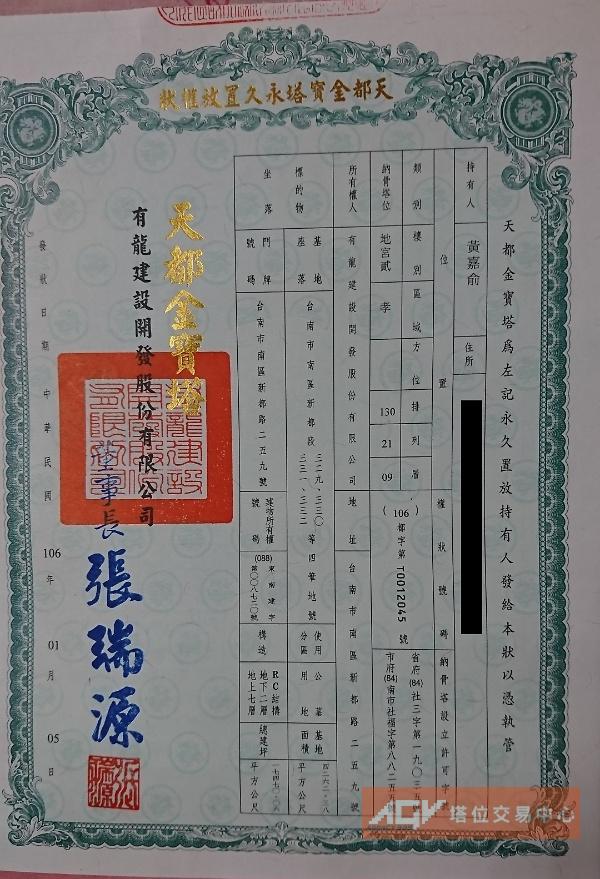 天都金寶塔永久置放權狀
天都金寶塔為左記永久置放持有人發給本狀以憑執管
持有人 黃嘉俞 住所
位置 權狀號碼 納骨塔設立許可字
類別 樓別 區域 方位 排 列 層
納骨塔位 地宮貳 孝 130 21 09 (106)都字第T0012045號
省府(84)社三字第一九〇三五
市府(84)南市社福字第八八二五
所有權人 有龍建設開發股份有限公司 地址 台南市南區新都路二五九號
標的物坐落
基地座落 台南市南區新都段 三二九、三三〇 三三一、三三二 等四筆地號 使用分區 公墓用地 基地面積 平方公尺
門牌號碼 台南市南區新都路二五九號 建物所有權號碼 (088)東南建字第〇〇八七二〇號 構造 RC結構 地下二層 地上七層 總建坪 平方公尺
天都金寶塔
有龍建設開發股份有限公司
董事長 張瑞源
發狀日期 中華民國 106 年 01 月 05 日
AGV 塔位交易中心